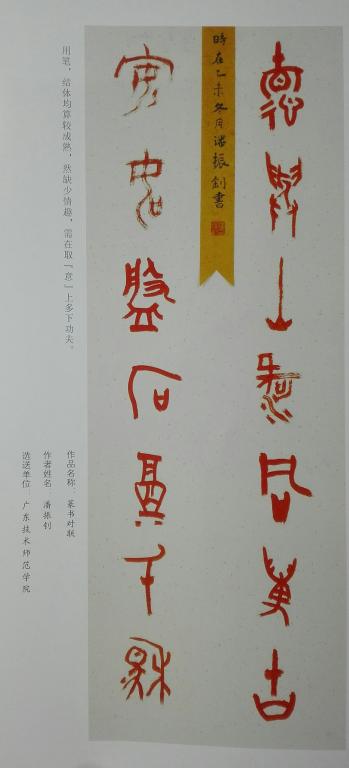 萬古
時在乙未冬月潘振釗書
盤石千
用笔，结体均算较成熟，然缺少情趣，需在取『意』上多下功夫。
作品名称：篆书对联
作者姓名：潘振钊
选送单位：广东技术师范学院